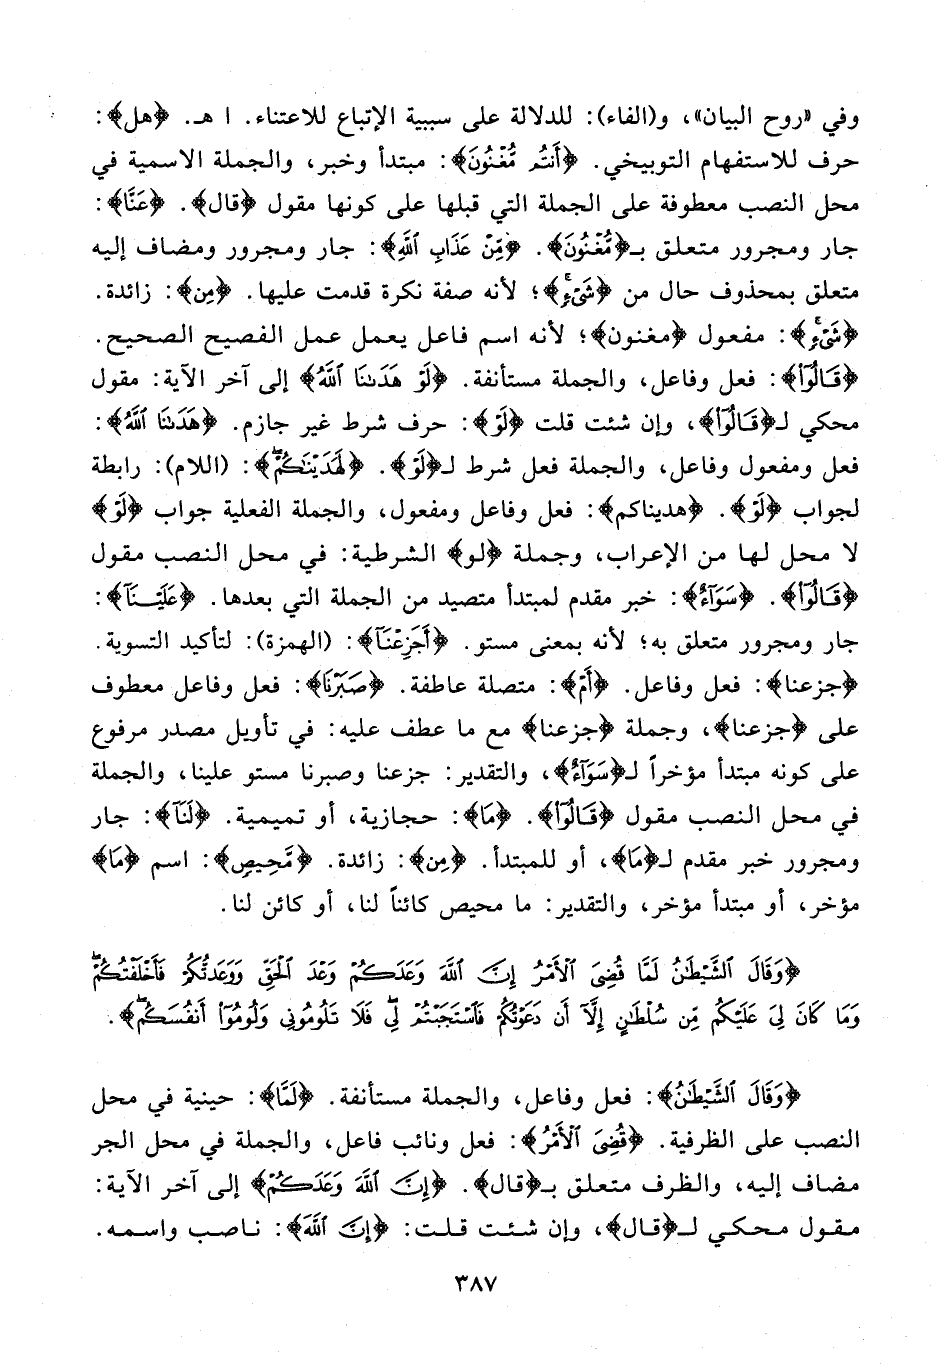 وفي «روح البيان»، و(الفاء): للدلالة على سببية الإتباع للاعتناء. ا هـ. ﴿هل﴾:
حرف للاستفهام التوبيخي. ﴿أَنتُم مُّغْنُونَ﴾: مبتدأ وخبر، والجملة الاسمية في
محل النصب معطوفة على الجملة التي قبلها على كونها مقول ﴿قال﴾. ﴿عَنَّا﴾:
جار ومجرور متعلق بـ﴿مُّغْنُونَ﴾. ﴿مِنْ عَذَابِ ٱللَّهِ﴾: جار ومجرور ومضاف إليه
متعلق بمحذوف حال من ﴿شَىْءٍ﴾؛ لأنه صفة نكرة قدمت عليها. ﴿مِن﴾: زائدة.
﴿شَىْءٍ﴾: مفعول ﴿مغنون﴾؛ لأنه اسم فاعل يعمل عمل الفصيح الصحيح.
﴿قَالُوا۟﴾: فعل وفاعل، والجملة مستأنفة. ﴿لَوْ هَدَىٰنَا ٱللَّهُ﴾ إلى آخر الآية: مقول
محكي لـ﴿قَالُوا۟﴾، وإن شئت قلت ﴿لَوْ﴾: حرف شرط غير جازم. ﴿هَدَىٰنَا ٱللَّهُ﴾:
فعل ومفعول وفاعل، والجملة فعل شرط لـ﴿لَوْ﴾. ﴿لَهَدَيْنَٰكُمْ﴾: (اللام): رابطة
لجواب ﴿لَوْ﴾. ﴿هديناكم﴾: فعل وفاعل ومفعول، والجملة الفعلية جواب ﴿لَوْ﴾
لا محل لها من الإعراب، وجملة ﴿لو﴾ الشرطية: في محل النصب مقول
﴿قَالُوا۟﴾. ﴿سَوَآءٌ﴾: خبر مقدم لمبتدأ متصيد من الجملة التي بعدها. ﴿عَلَيْنَآ﴾:
جار ومجرور متعلق به؛ لأنه بمعنى مستو. ﴿أَجَزِعْنَآ﴾: (الهمزة): لتأكيد التسوية.
﴿جزعنا﴾: فعل وفاعل. ﴿أَمْ﴾: متصلة عاطفة. ﴿صَبَرْنَا﴾: فعل وفاعل معطوف
على ﴿جزعنا﴾، وجملة ﴿جزعنا﴾ مع ما عطف عليه: في تأويل مصدر مرفوع
على كونه مبتدأ مؤخراً لـ﴿سَوَآءٌ﴾، والتقدير: جزعنا وصبرنا مستو علينا، والجملة
في محل النصب مقول ﴿قَالُوا۟﴾. ﴿مَا﴾: حجازية، أو تميمية. ﴿لَنَا﴾: جار
ومجرور خبر مقدم لـ﴿مَا﴾، أو للمبتدأ. ﴿مِن﴾: زائدة. ﴿مَّحِيصٍ﴾: اسم ﴿مَا﴾
مؤخر، أو مبتدأ مؤخر، والتقدير: ما محيص كائناً لنا، أو كائن لنا.
﴿وَقَالَ ٱلشَّيْطَٰنُ لَمَّا قُضِىَ ٱلْأَمْرُ إِنَّ ٱللَّهَ وَعَدَكُمْ وَعْدَ ٱلْحَقِّ وَوَعَدتُّكُمْ فَأَخْلَفْتُكُمْ ۖ
وَمَا كَانَ لِىَ عَلَيْكُم مِّن سُلْطَٰنٍ إِلَّآ أَن دَعَوْتُكُمْ فَٱسْتَجَبْتُمْ لِى ۖ فَلَا تَلُومُونِى وَلُومُوٓا۟ أَنفُسَكُم ۖ﴾.
﴿وَقَالَ ٱلشَّيْطَٰنُ﴾: فعل وفاعل، والجملة مستأنفة. ﴿لَمَّا﴾: حينية في محل
النصب على الظرفية. ﴿قُضِىَ ٱلْأَمْرُ﴾: فعل ونائب فاعل، والجملة في محل الجر
مضاف إليه، والظرف متعلق بـ﴿قال﴾. ﴿إِنَّ ٱللَّهَ وَعَدَكُمْ﴾ إلى آخر الآية:
مقول محكي لـ﴿قال﴾، وإن شئت قلت: ﴿إِنَّ ٱللَّهَ﴾: ناصب واسمه.
٣٨٧